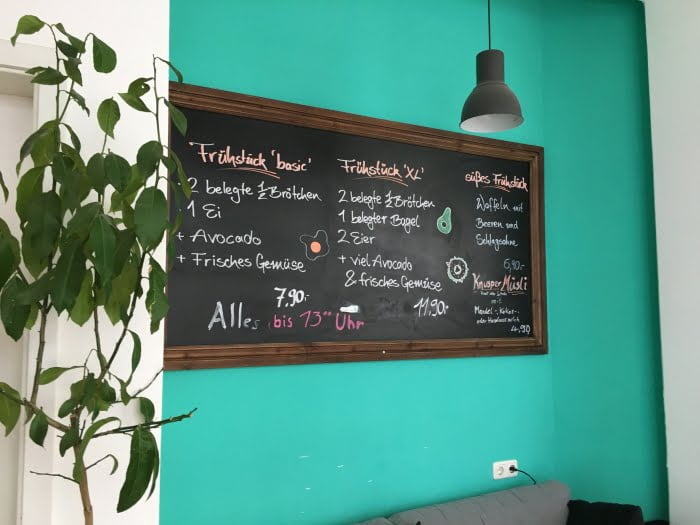 Frühstück 'basic'
2 belegte ½ Brötchen
1 Ei
+ Avocado
+ Frisches Gemüse
7,90.-
Frühstück 'XL'
2 belegte ½ Brötchen
1 belegter Bagel
2 Eier
+ viel Avocado
& frisches Gemüse
11,90.-
Alles bis 13⁰⁰ Uhr
süßes Frühstück
Waffeln mit
Beeren und
Schlagsahne
6,90.-
Knusper Müsli
mit
Mandel-, Kokos-
oder Hafermilch
4,90